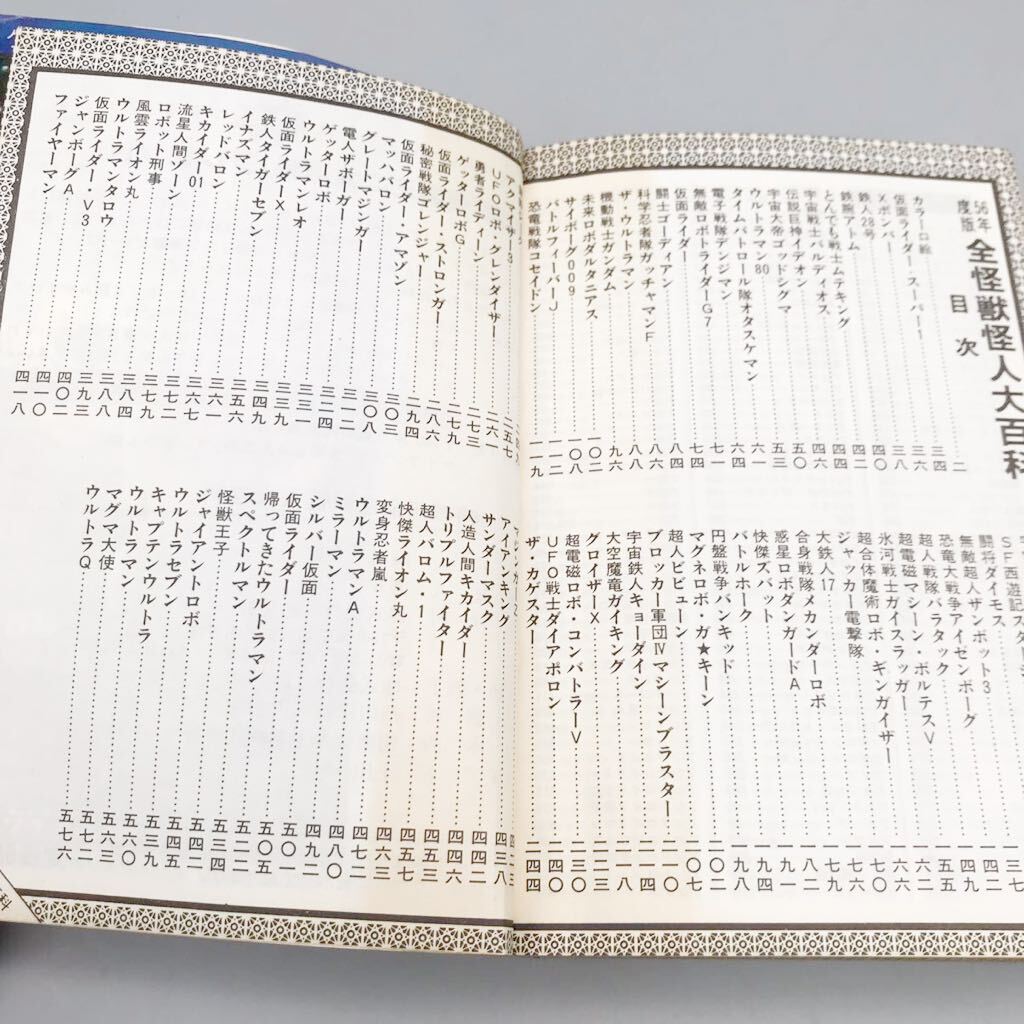 56年度版 全怪獣怪人大百科
目次
カラー口絵……二
仮面ライダー・スーパー1……三四
Xボンバー……三六
鉄人28号……三八
鉄腕アトム……四〇
とんでも戦士ムテキング
宇宙戦士バルディオス
伝説巨神イデオン
宇宙大帝ゴッドシグマ
ウルトラマン80
タイムパトロール隊オタスケマン……六四
電子戦隊デンジマン……七一
無敵ロボトライダーG7……七四
闘士ゴーディアン……八四
仮面ライダー
科学忍者隊ガッチャマンF
ザ・ウルトラマン……八八
機動戦士ガンダム……九六
未来ロボダルタニアス……一〇二
サイボーグ009……一〇八
バトルフィーバーJ……一一二
恐竜戦隊コセイドン……一一九
SF西遊記
闘将ダイモス
無敵超人ザンボット3
恐竜大戦争アイゼンボーグ
超人戦隊バラタック
超電磁マシーン・ボルテスV
氷河戦士ガイスラッガー
超合体魔術ロボ・ギンガイザー
ジャッカー電撃隊
大鉄人17
合身戦隊メカンダーロボ
惑星ロボダンガードA
快傑ズバット
バトルホーク
円盤戦争バンキッド
マグネロボ・ガ★キーン……二〇二
超人ビビューン……二〇七
ブロッカー軍団Ⅳマシーンブラスター……二一〇
宇宙鉄人キョーダイン……二一四
大空魔竜ガイキング……二一八
グロイザーX……二二三
超電磁ロボ・コンバトラーV……二三〇
UFO戦士ダイアポロン……二四〇
ザ・カゲスター……二四四
アクマイザー3
UFOロボ・グレンダイザー……二五七
勇者ライディーン……二六一
ゲッターロボG……二七三
仮面ライダー・ストロンガー……二七九
秘密戦隊ゴレンジャー……二八六
仮面ライダー・アマゾン……二九四
マッハバロン……三〇三
グレートマジンガー……三〇八
電人ザボーガー……三一二
ゲッターロボ……三二四
ウルトラマンレオ……三三一
仮面ライダーX
鉄人タイガーセブン……三四九
イナズマン……三五六
レッドバロン……三六一
キカイダー01……三六七
流星人間ゾーン……三七二
ロボット刑事……三七九
風雲ライオン丸……三八四
ウルトラマンタロウ
仮面ライダー・V3
ジャンボーグA
ファイヤーマン……四一八
アイアンキング
サンダーマスク……四三八
人造人間キカイダー……四四二
トリプルファイター……四四六
超人バロム・1……四五三
快傑ライオン丸……四五七
変身忍者嵐……四六三
ウルトラマンA……四七二
ミラーマン……四八〇
シルバー仮面……四九二
仮面ライダー……五〇一
帰ってきたウルトラマン……五〇五
スペクトルマン
怪獣王子……五三四
ジャイアントロボ
ウルトラセブン
キャプテンウルトラ……五六〇
ウルトラマン……五六三
マグマ大使……五七二
ウルトラQ……五七六